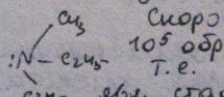 CH₃
Скоро
:N — C₂H₅-
10⁵ обр
т.е.